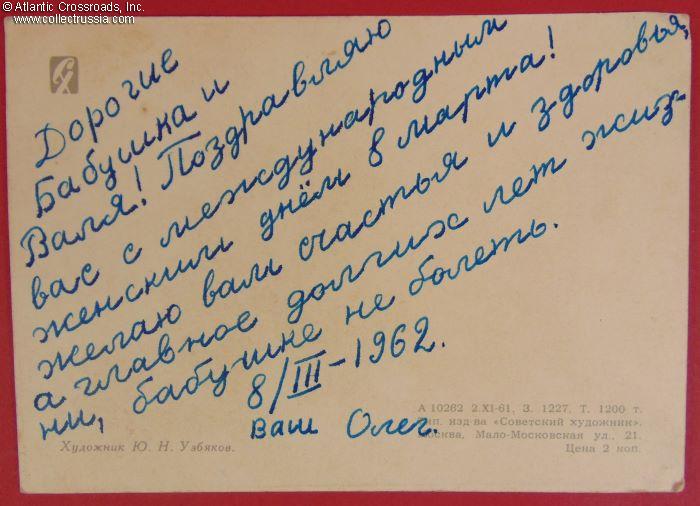 © Atlantic Crossroads, Inc.
www.collectrussia.com
Дорогие
Бабушка и
Валя! Поздравляю
вас с международным
женским днём 8 марта!
желаю вам счастья и здоровья,
а главное долгих лет жиз-
ни, бабушке не болеть.
8/III-1962.
ваш Олег.
Художник Ю. Н. Узбяков.
А 10262 2.XI-61, З. 1227, Т. 1200 т.
Тип. изд-ва «Советский художник».
Москва, Мало-Московская ул., 21.
Цена 2 коп.